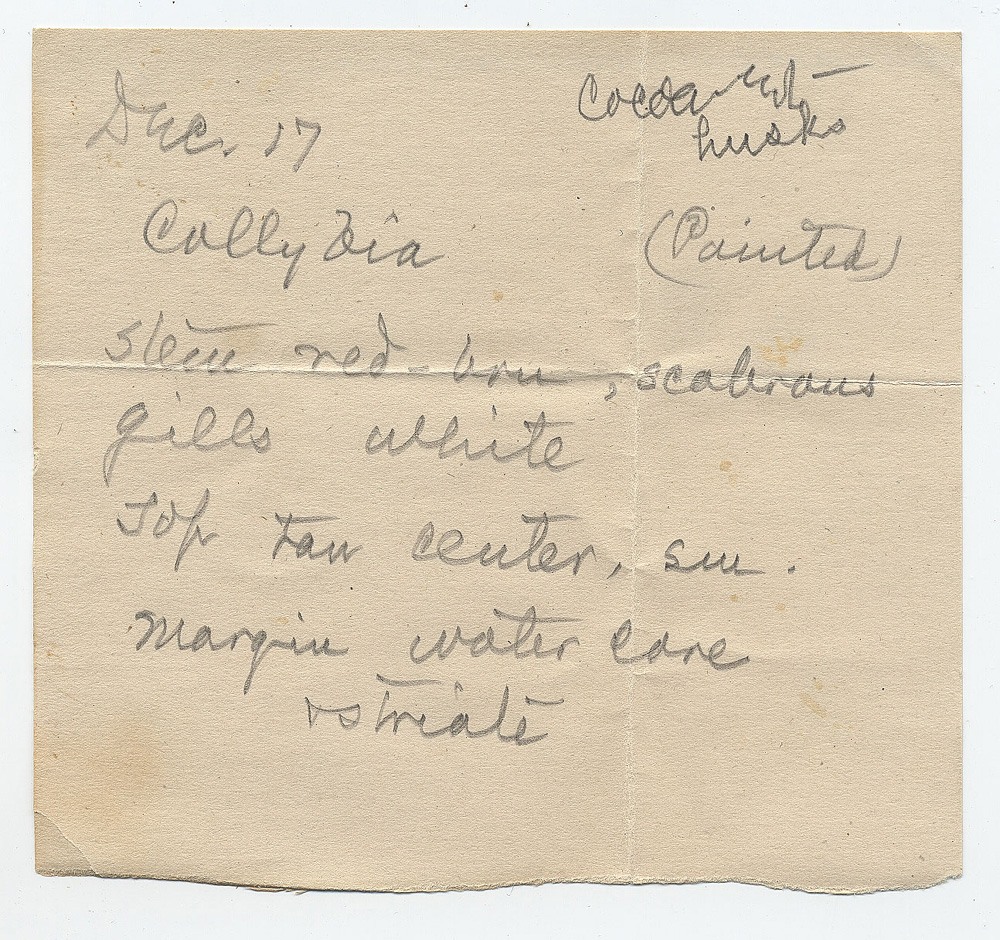 Dec. 17
Cocoa-nut
husks
Collybia (Painted)
Stem red-brn, scabrous
gills white
Top tan center, sm.
Margin water core
+ striate